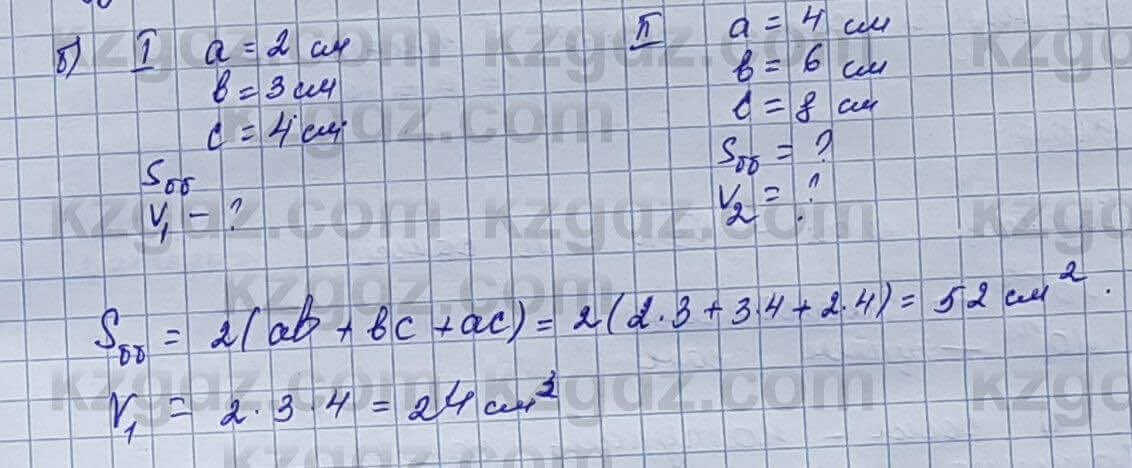 б) I a = 2 см
в = 3 см
c = 4 см
Sбб
V₁ – ?
II a = 4 см
в = 6 см
c = 8 см
Sбб = ?
V₂ = ?
Sбб = 2(ab + вc + ac) = 2(2·3 + 3·4 + 2·4) = 52 см².
V₁ = 2·3·4 = 24 см³
kzgdz.com